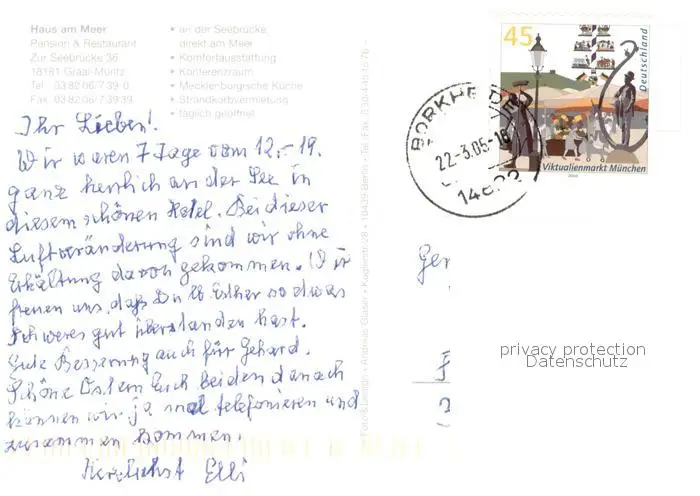 Haus am Meer
Pension & Restaurant
Zur Seebrücke 36
18181 Graal-Müritz
Tel. 03 82 06/7 39-0
Fax 03 82 06/7 39 39
• an der Seebrücke,
direkt am Meer
• Komfortausstattung
• Konferenzraum
• Mecklenburgische Küche
• Strandkorbvermietung
• täglich geöffnet
Ihr Lieben!
Wir waren 7 Tage vom 12.-19.
ganz herlich an der See in
diesem schönen Hotel. Bei dieser
Luftveränderung sind wir ohne
Erkältung davon gekommen. Wir
freuen uns, daß Du lb. Esther so etwas
schweres gut überstanden hast.
Gute Besserung auch für Gehard.
Schöne Ostern Euch beiden danach
können wir ja mal telefonieren und
zusammen kommen.
Herzlichst Elli
45
Deutschland
Viktualienmarkt München
BORKHEIDE
22-3.05-16
Ger
privacy protection
Datenschutz